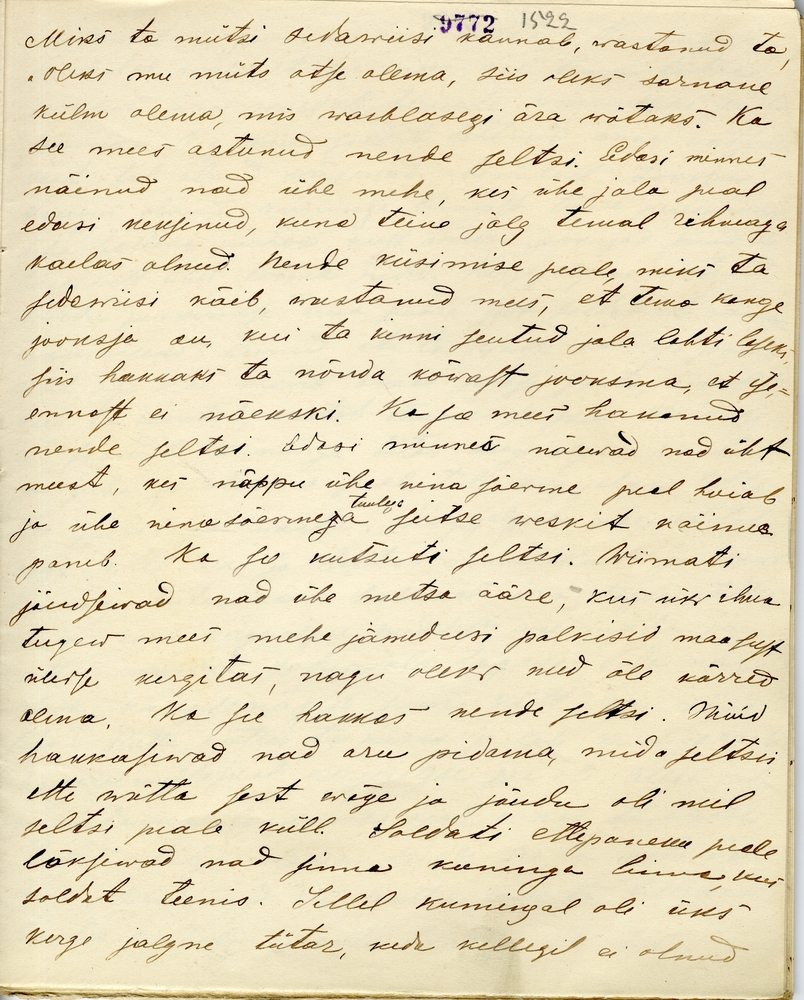 9772 1522
Miks ta mütsi sedawiisi kannab, wastanud ta,
oleks mu müts otse olema, siis oleks sarnane
külm olema, mis warblasegi ära wõtaks. Ka
see mees astunud nende seltsi. Edasi minnes
näinud nad ühe mehe, kes ühe jala peal
edasi keksinud, kuna teine jalg temal rihmaga
kaelas olnud. Nende küsimise peale, miks ta
sedawiisi käib, wastanud mees, et tema kange
jooksja on, kui ta kinni seutud jala lahti laseks,
siis hakkaks ta nõnda kõwast jooksma, et ise=
ennast ei näekski. Ka se mees hakanud
nende seltsi. Edasi minnes näewad nad üht
meest, kes näppu ühe nina sõerme peal hoiab
ja ühe nina sõermega tuulega seitse weskit käima
paneb. Ka se kutsuti seltsi. Wiimati
jõudsiwad nad ühe metsa ääre, kus üks ilma
tugew mees mehe jämedusi palkisid maa seest
ülesse kergitas, nagu oleks need õle kõrred
olema. Ka see hakkas nende seltsi. Nüüd
hakkasiwad nad aru pidama, mida seltsis
ette wõtta sest wäge ja jõudu oli neil
seltsi peale küll. Soldati ettepaneku peale
läksiwad nad sinna kuninga linna, kus
soldat teenis. Sellel kuningal oli üks
kerge jalgne tütar, keda kellegil ei olnud